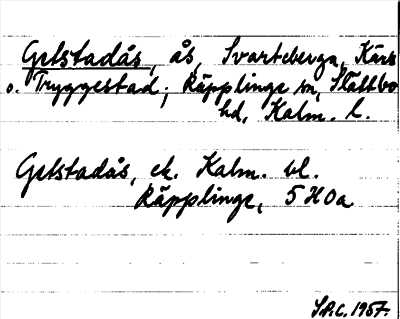 Gelstadås, ås, Svarteberga, Kärr
o. Tryggestad; Räpplinge sn, Slättbo
hd, Kalm. l.
Gelstadås, ek. Kalm. bl.
Räpplinge, 5 H 0a
1957.